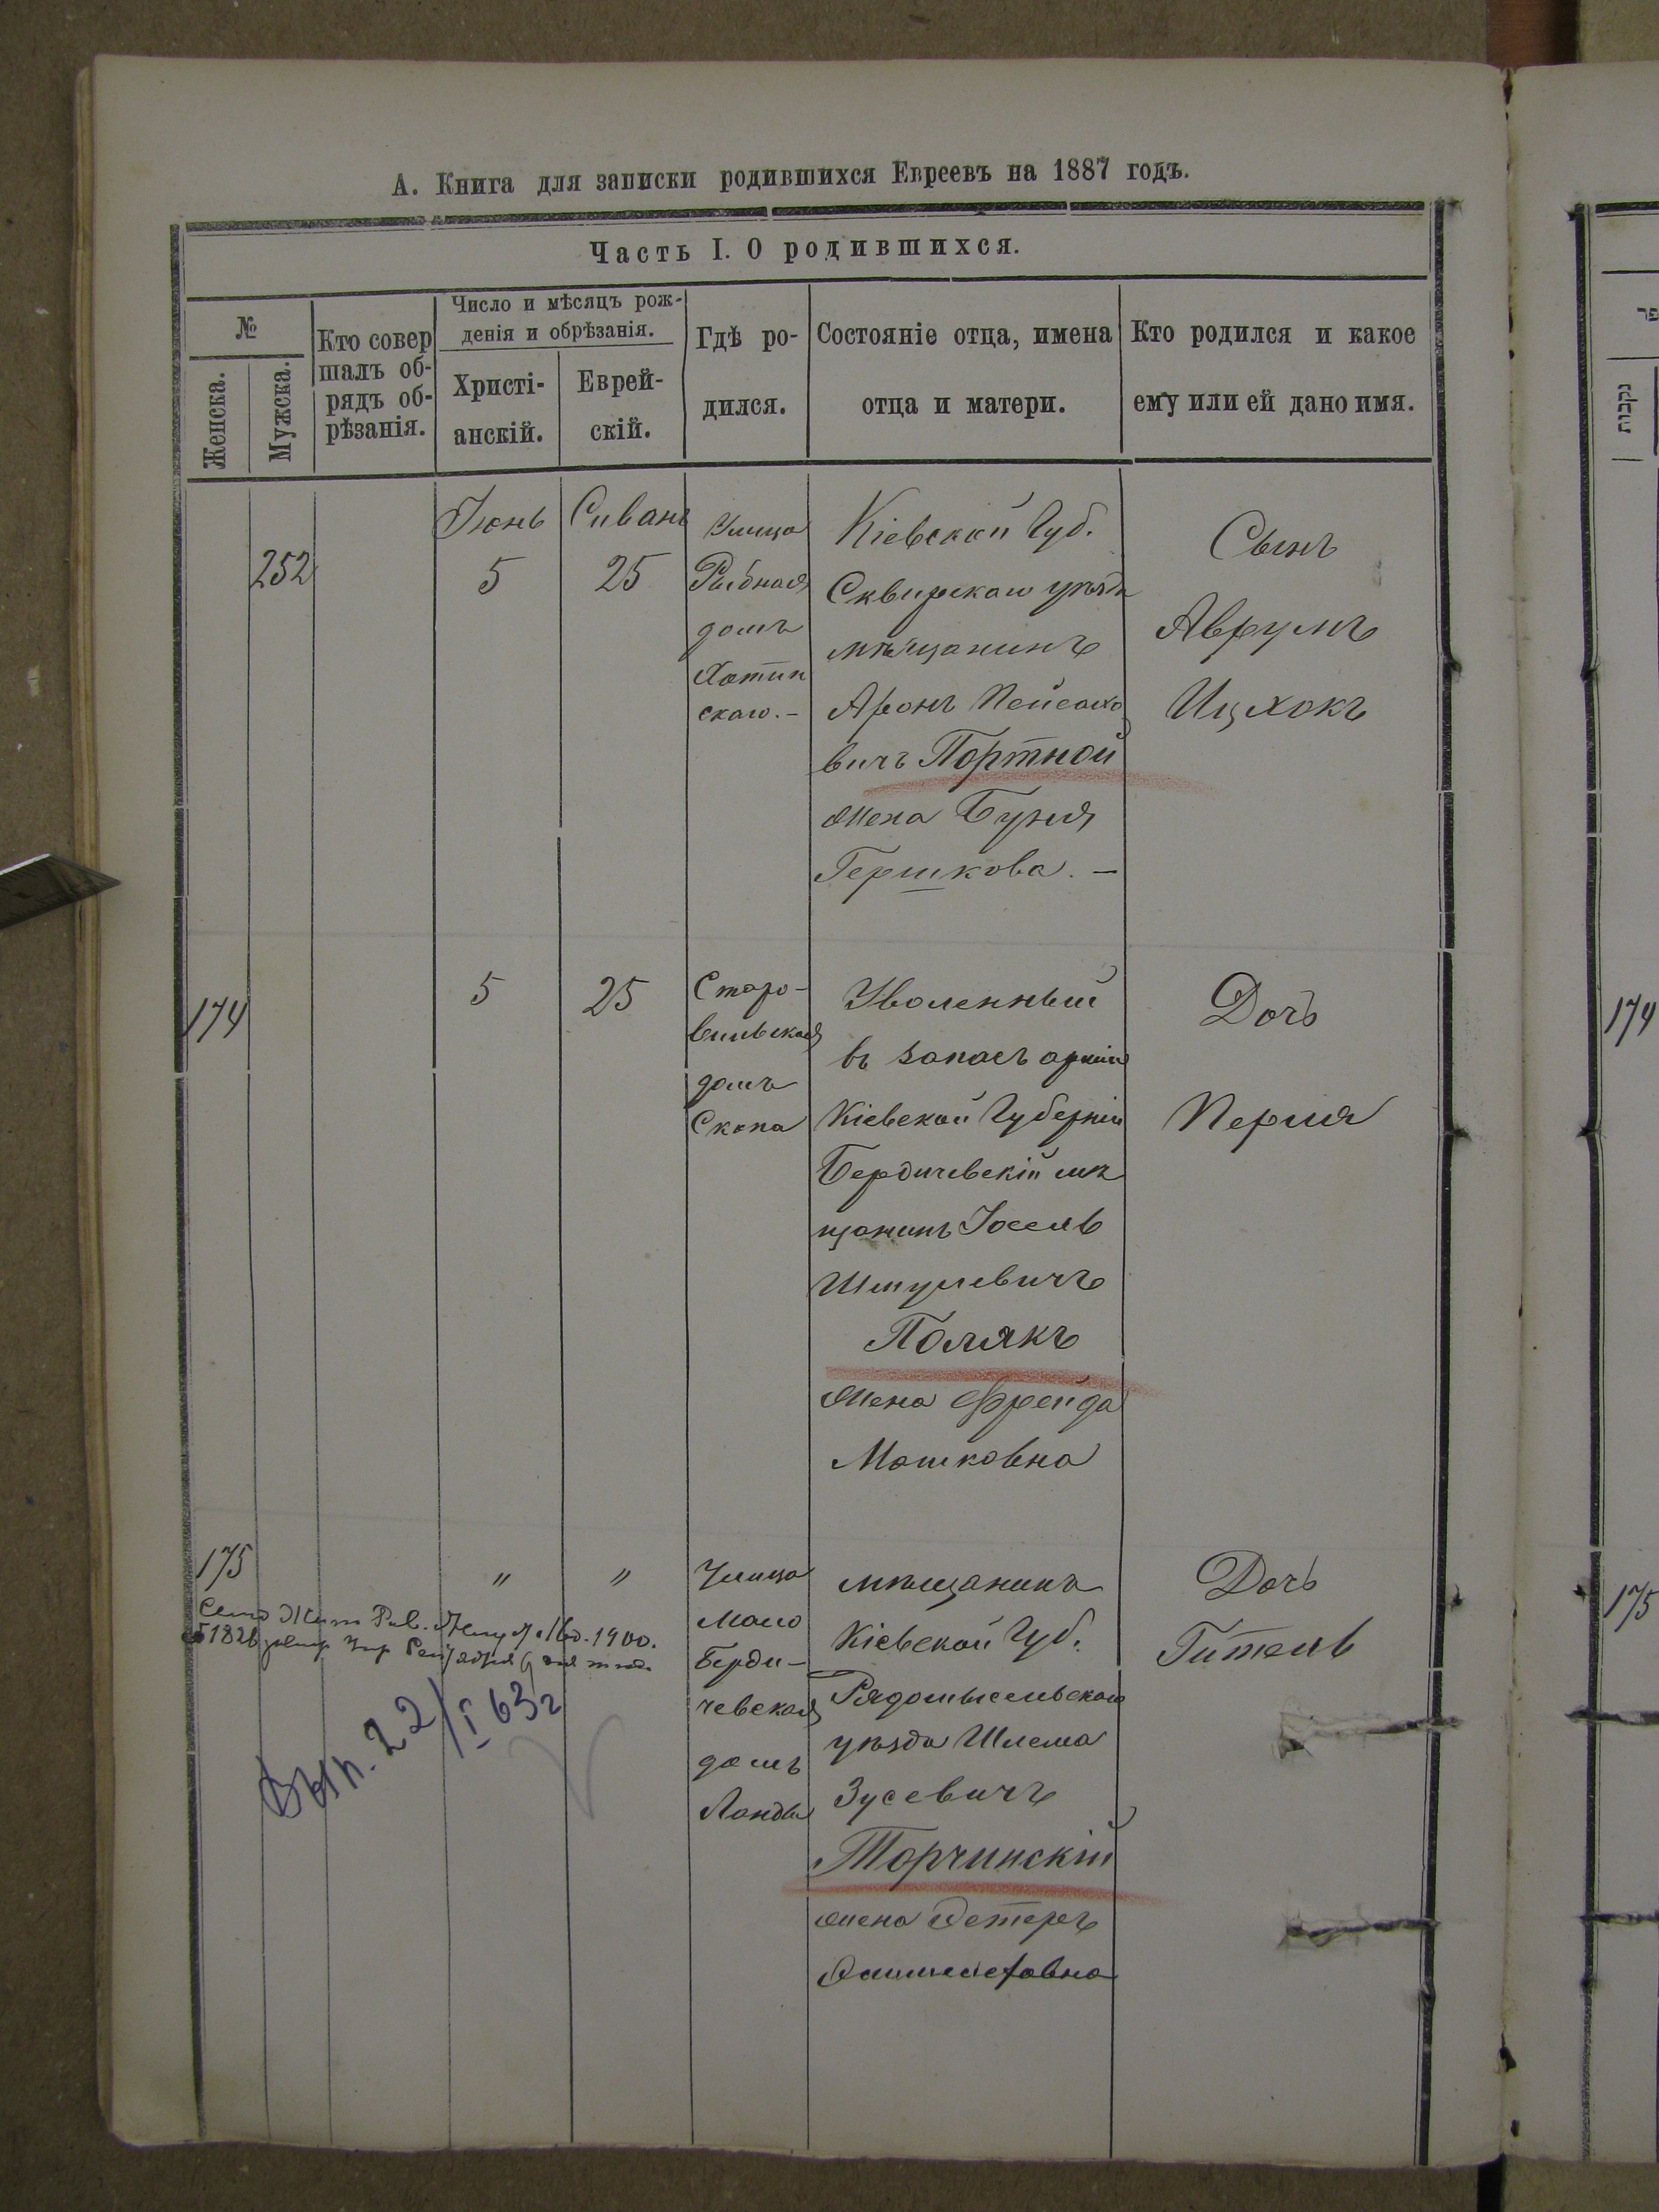 А. Книга для записки родившихся Евреевъ на 1887 годъ.
Часть I. О родившихся.
№
Женска.
Мужска.
Кто совер
шалъ об-
рядъ об-
рѣзанія.
Число и мѣсяцъ рож-
денія и обрѣзанія.
Христі-
анскій.
Еврей-
скій.
Гдѣ ро-
дился.
Состояніе отца, имена
отца и матери.
Кто родился и какое
ему или ей дано имя.
252
Іюнь
5
Сиванъ
25
Улица
Рыбная
домъ
Хотин
скаго.-
Кіевской Губ.
Сквирскаго уѣзда
мѣщанинъ
Аронъ Пейсахо
вичъ Портной
жена Буня
Гершкова. -
Сынъ
Аврумъ
Ицхокъ
174
5
25
Старо-
вильская
домъ
Скопа
Уволенный
въ запасъ арміи
Кіевской Губерніи
Бердичевскій мѣ
щанинъ Іосель
Шмулевичъ
Полякъ
жена Фрейда
Мошковна
Дочь
Перля
175
"
"
Улица
Мало
Берди-
чевская
домъ
Ланды
мѣщанинъ
Кіевской Губ.
Радомысельскаго
уѣзда Шлема
Зусевичъ
Торчинскій
жена Эстеръ
Дочь
Гитель
1900.
Вып. 22/I 63г
פר
נקבות
174
175